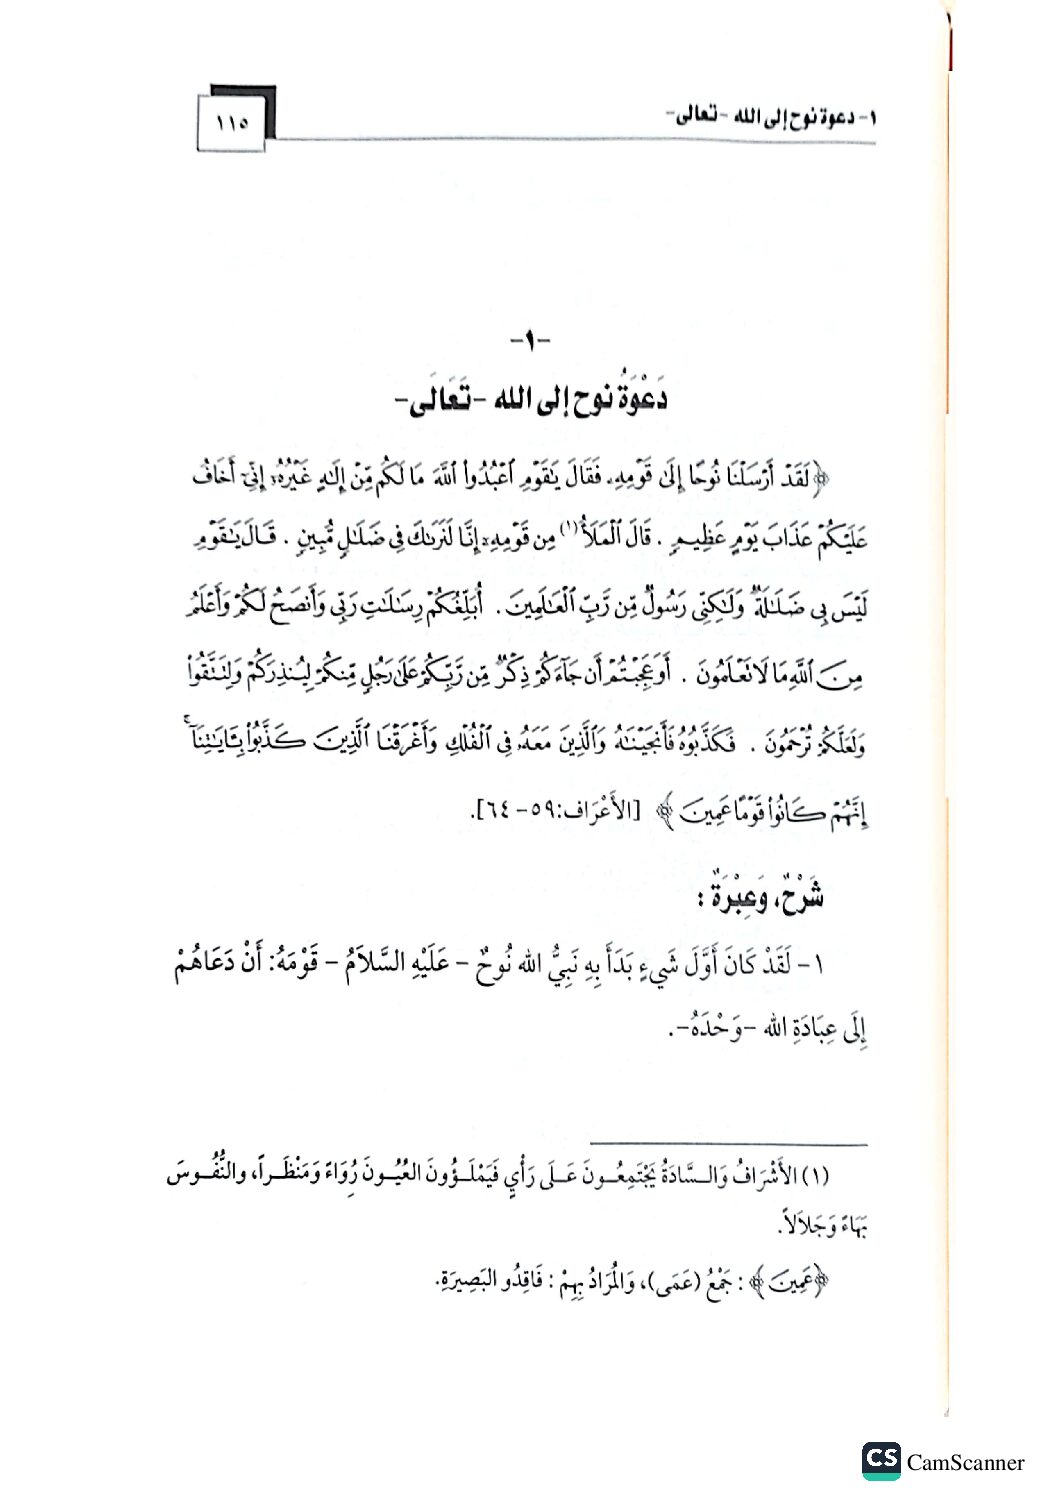 ١- دعوة نوح إلى الله -تعالى-
١١٥
-١-
دَعْوَةُ نوح إلى الله -تَعَالَى-
﴿لَقَدْ أَرْسَلْنَا نُوحًا إِلَىٰ قَوْمِهِۦ فَقَالَ يَٰقَوْمِ ٱعْبُدُوا۟ ٱللَّهَ مَا لَكُم مِّنْ إِلَٰهٍ غَيْرُهُۥٓ إِنِّىٓ أَخَافُ
عَلَيْكُمْ عَذَابَ يَوْمٍ عَظِيمٍ . قَالَ ٱلْمَلَأُ(١) مِن قَوْمِهِۦٓ إِنَّا لَنَرَىٰكَ فِى ضَلَٰلٍ مُّبِينٍ . قَالَ يَٰقَوْمِ
لَيْسَ بِى ضَلَٰلَةٌ وَلَٰكِنِّى رَسُولٌ مِّن رَّبِّ ٱلْعَٰلَمِينَ . أُبَلِّغُكُمْ رِسَٰلَٰتِ رَبِّى وَأَنصَحُ لَكُمْ وَأَعْلَمُ
مِنَ ٱللَّهِ مَا لَا تَعْلَمُونَ . أَوَعَجِبْتُمْ أَن جَآءَكُمْ ذِكْرٌ مِّن رَّبِّكُمْ عَلَىٰ رَجُلٍ مِّنكُمْ لِيُنذِرَكُمْ وَلِتَتَّقُوا۟
وَلَعَلَّكُمْ تُرْحَمُونَ . فَكَذَّبُوهُ فَأَنجَيْنَٰهُ وَٱلَّذِينَ مَعَهُۥ فِى ٱلْفُلْكِ وَأَغْرَقْنَا ٱلَّذِينَ كَذَّبُوا۟ بِـَٔايَٰتِنَآ ۚ
إِنَّهُمْ كَانُوا۟ قَوْمًا عَمِينَ﴾ [الأَعْرَاف:٥٩- ٦٤].
شَرْحٌ، وَعِبْرَةٌ :
١- لَقَدْ كَانَ أَوَّلَ شَيءٍ بَدَأَ بِهِ نَبِيُّ الله نُوحٌ - عَلَيْهِ السَّلاَمُ - قَوْمَهُ: أَنْ دَعَاهُمْ
إِلَى عِبَادَةِ الله -وَحْدَهُ-.
(١) الأَشْرَافُ وَالسَّادَةُ يَجْتَمِعُونَ عَلَى رَأْيٍ فَيَمْلَؤُونَ العُيُونَ رُوَاءً وَمَنْظَراً، والنُّفُوسَ
بَهَاءً وَجَلاَلاً.
﴿عَمِينَ﴾ : جَمْعُ (عَمَى)، وَالمُرَادُ بِهِمْ : فَاقِدُو البَصِيرَةِ.
CS CamScanner